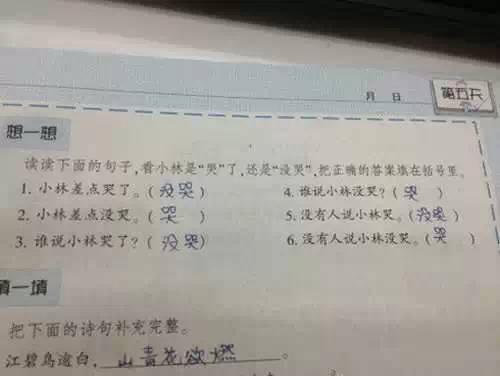 月 日
第五天
想一想
读读下面的句子,看小林是“哭”了,还是“没哭”,把正确的答案填在括号里。
1. 小林差点哭了。(没哭) 4. 谁说小林没哭?(哭)
2. 小林差点没哭。(哭) 5. 没有人说小林哭。(没哭)
3. 谁说小林哭了?(没哭) 6. 没有人说小林没哭。(哭)
填一填
把下面的诗句补充完整。
江碧鸟逾白,山青花欲燃。